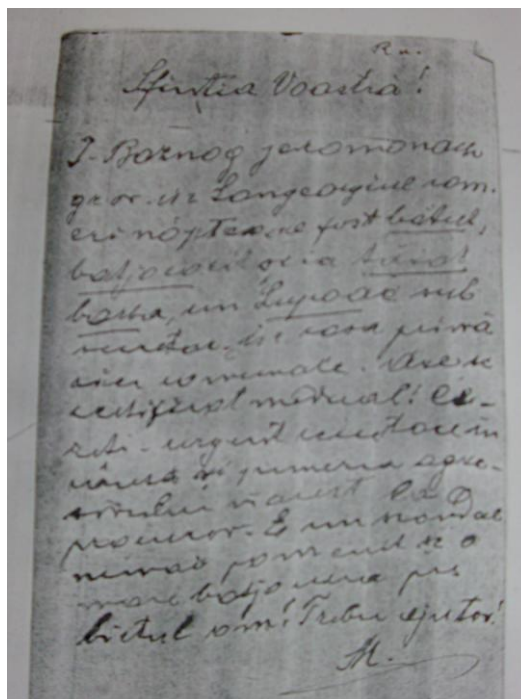 Sfintia Voastră!
P. Boznog jeromonach
gr. or. in Sangeorgiul rom.
eri nóptea a fost bătut,
batjocorit si ia tăiat
barba, un sub
in casa primă
riei comunale. Are si
certificat medical! Ce-
reti urgent in
si punerea agre-
sorului in arest la
procuror. E un scandal
nemai pomenit si o
mare batjocura
bietul om! Trebu ajutor!
M.